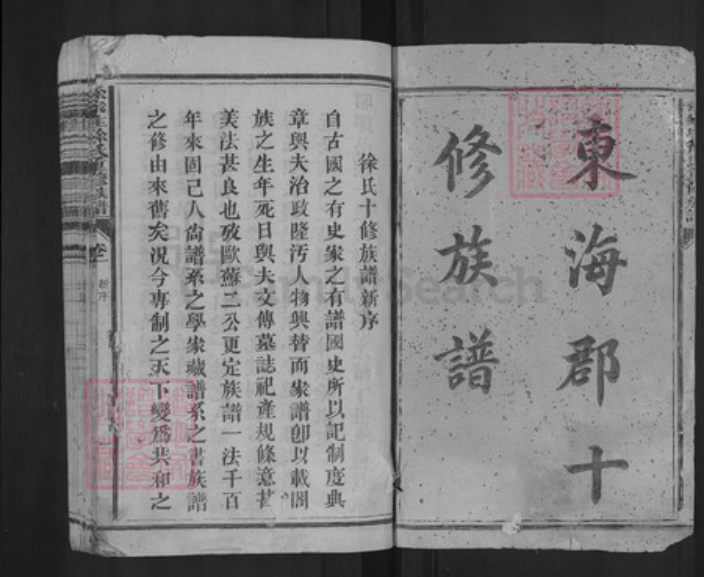 東海郡十
修族譜
徐氏十修族譜新序
自古國之有史家之有譜國史所以記制度典
章與夫治政隆汚人物興替而家譜卽以載閤
族之生年死日與夫文傳墓誌祀產規條意甚
美法甚良也攷歐蘇二公更定族譜一法千百
年來固已人尙譜系之學家藏譜系之書族譜
之修由來舊矣况今専制之天下變爲共和之
卷一
新序